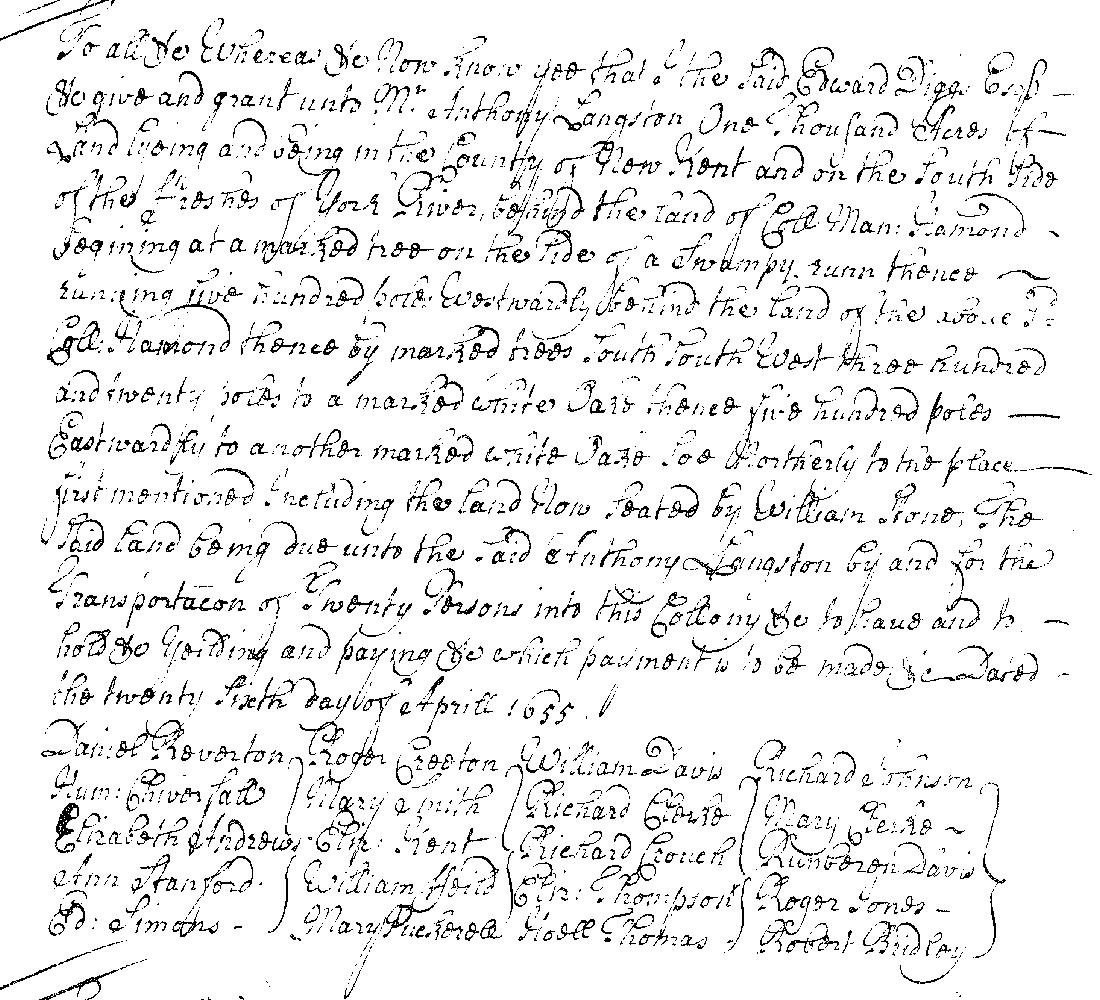 To all &c Whereas &c Now know yee that I the said Edward Digges Esqr
&c give and grant unto Mr Anthony Langston One Thousand Acres of
Land lyeing and being in the County of New Kent and on the South side
of the Freshes of York River, behind the land of Coll Man: Hamond
begining at a marked tree on the side of a Swampy runn thence
running five hundred poles Westwardly behind the land of the above sd
Coll: Hamond thence by marked trees South South West three hundred
and twenty poles to a marked white Oake thence five hundred poles
Eastwardly to another marked white Oake soe Northerly to the place
first mentioned Including the land Now seated by William Stone, The
said land being due unto the said Anthony Langston by and for the
Transportacon of Twenty Persons into this Collony &c to have and to
hold &c Yeilding and paying &c which payment is to be made &c Dated
the twenty sixth day of Aprill 1655
Daniel Reverton Roger Creeton William Davis Richard Johnson
Hum: Chiversall Mary Smith Richard Clerke Mary Clerke
Elizabeth Andrews Eliz: Kent Richard Crouch Davis
Ann Stanford William Heild Eliz: Thompson Roger Jones
Ed: Simons Mary Puckerell Hoell Thomas Robert Bridley